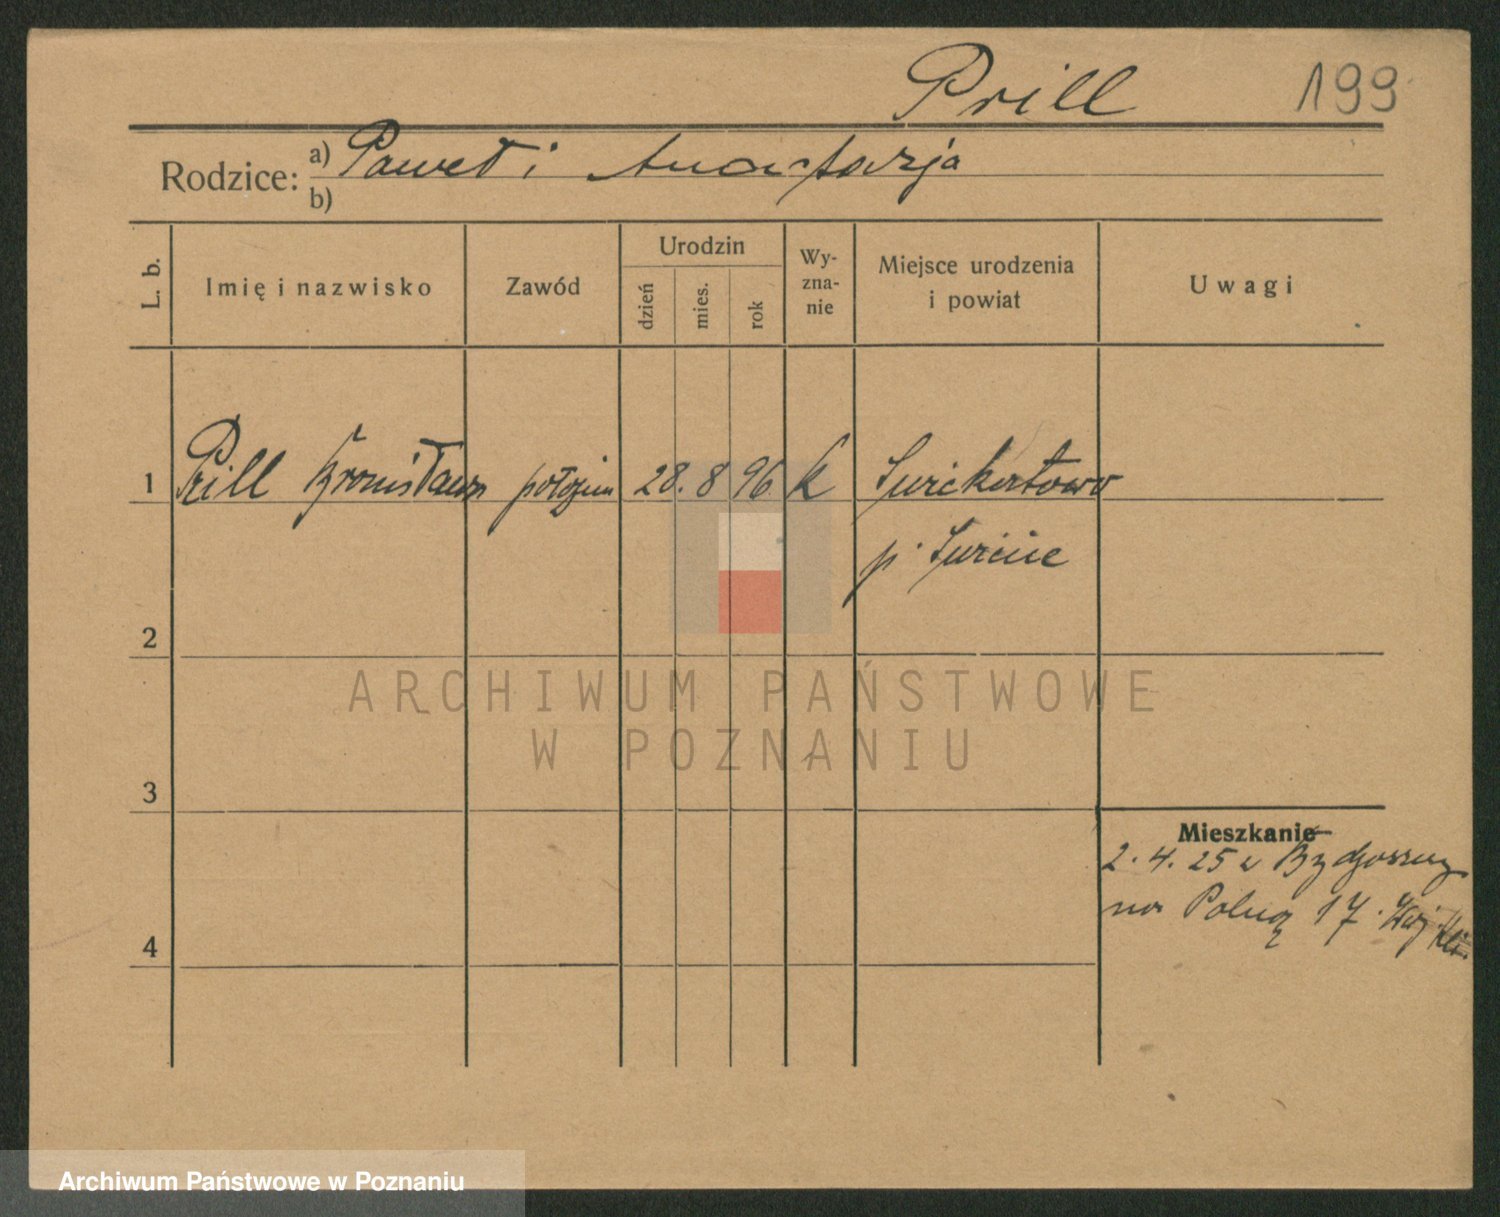 Prill 199
Rodzice: a) Paweł i Anastazja
b)
L. b.
Imię i nazwisko
Zawód
Urodzin
dzień
mies.
rok
Wy-
zna-
nie
Miejsce urodzenia
i powiat
Uwagi
1 Prill Bronisława położna 28. 8 96 k Świekatowo
p. Świecie
2
3
4
Mieszkanie
2. 4. 25 z Bydgoszczy
na Polną 17.
ARCHIWUM PAŃSTWOWE
W POZNANIU
Archiwum Państwowe w Poznaniu